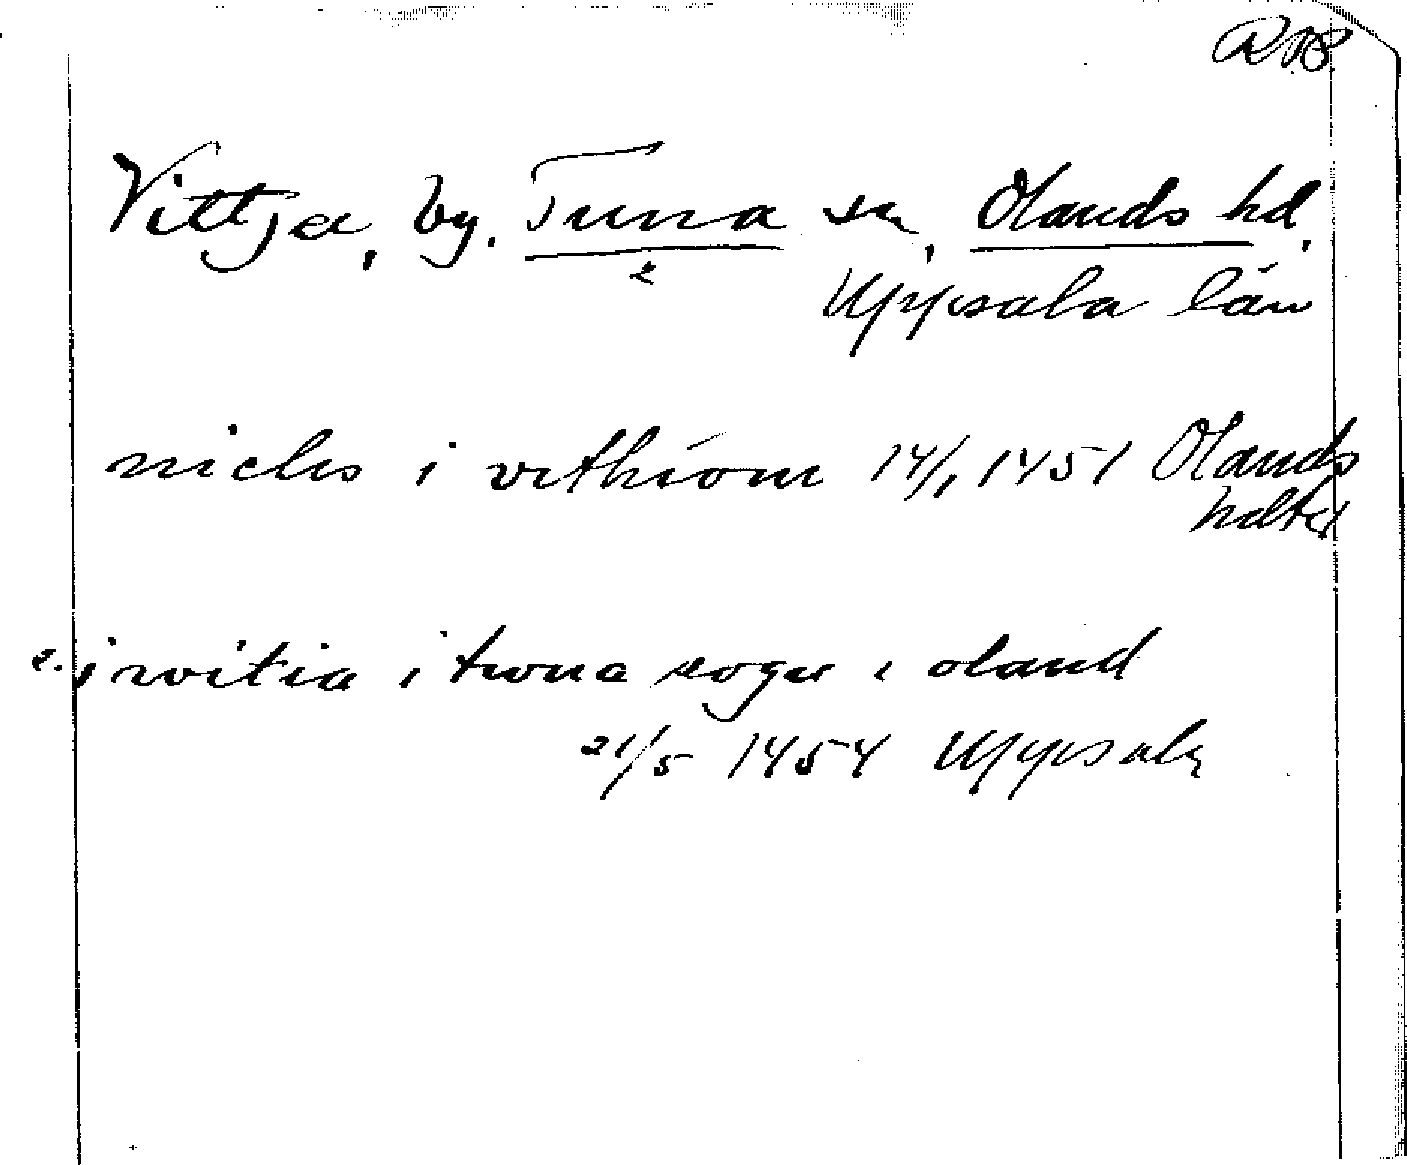 Vittja, by. Tuna sn, Olands hd.
2
Uppsala län
niclis i vithiom 14/1 1451 Olands
hdtg
2. i witia i twna sogn i oland
21/5 1454 Uppsala